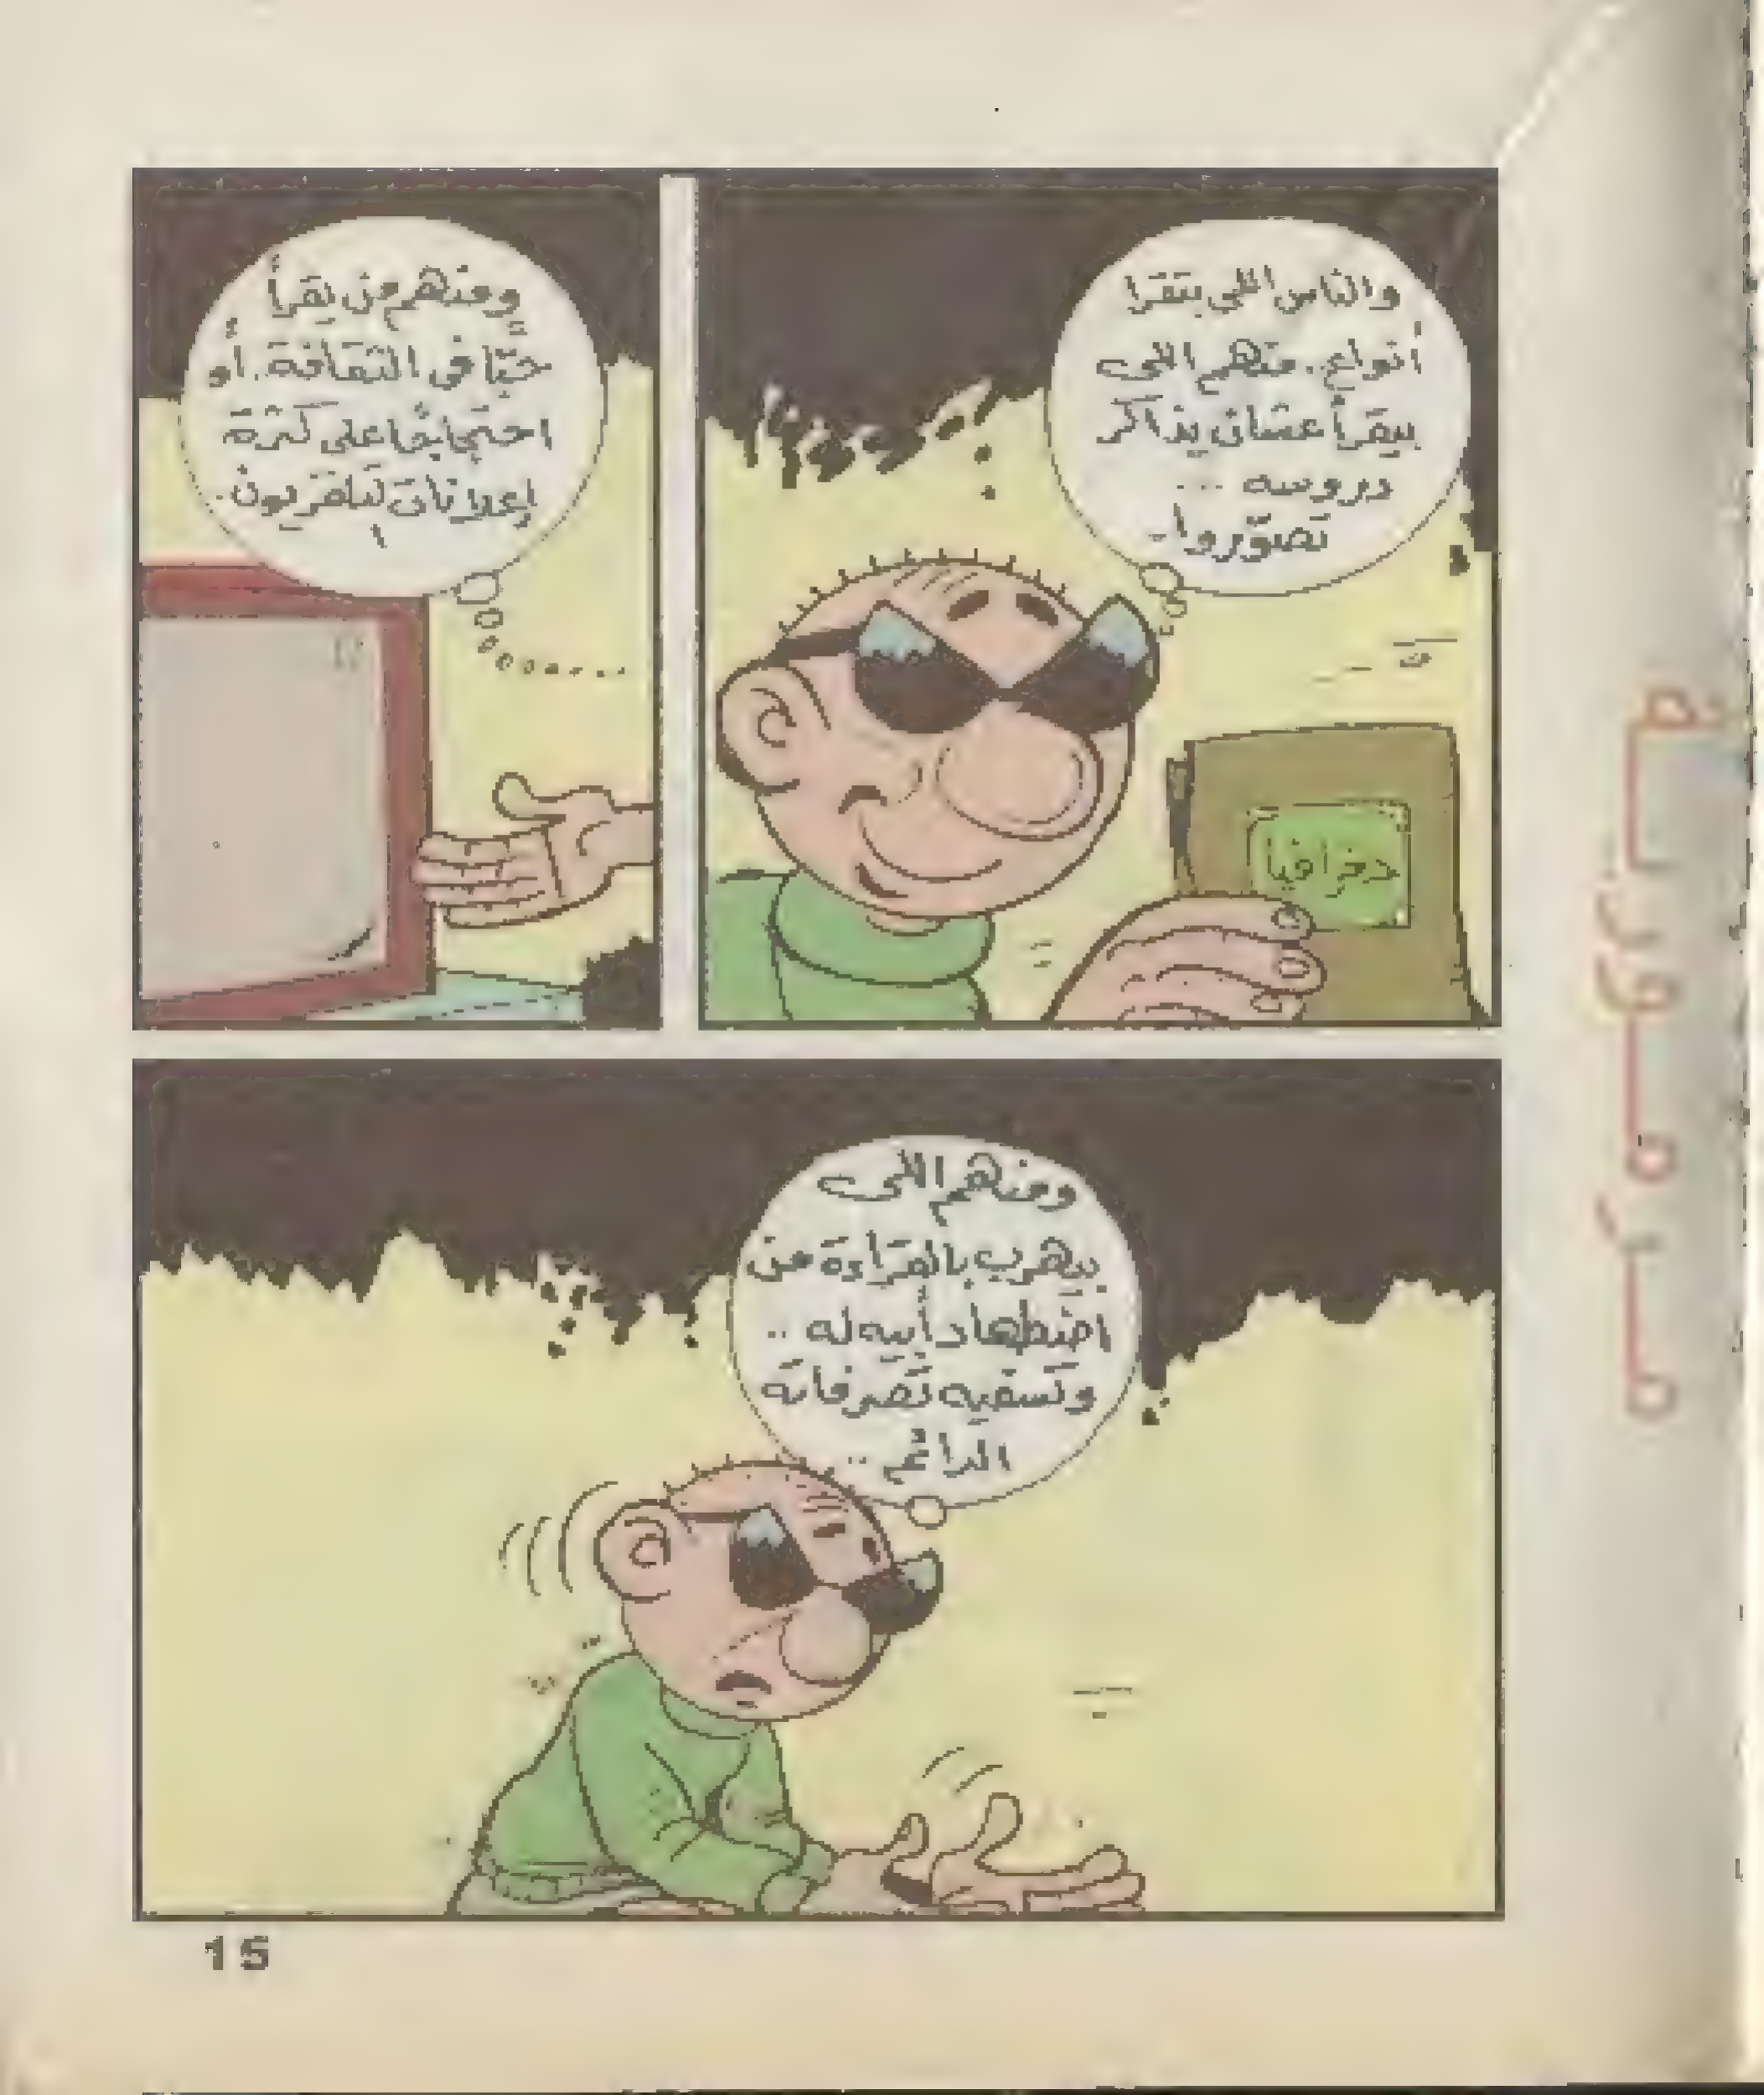 والناس اللى بتقرا
أنواع. منهم اللى
بيقرأ عشان يذاكر
دروسه ...
تصوّروا.
جغرافيا
ومنهم من يقرأ
حبًّا فى الثقافة. أو
احتجاجًا على كثرة
إعلانات التليفزيون.
ومنهم اللى
بيهرب بالقراءة من
اضطهاد أبيه له ..
وتسفيه تصرفاته
الدائم ..
15